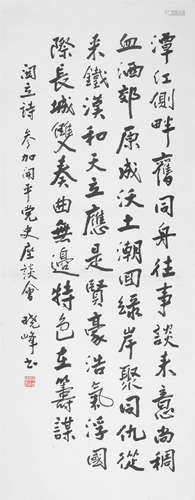 潭江側畔舊同舟往事談来意尚稠
血洒郊原成沃土潮回緑岸聚同仇從
来鐵漢和天立應是賢豪浩氣浮國
際長城雙奏曲無邊特色在籌謀
関立詩 参加開平党史座談會 曉峰書